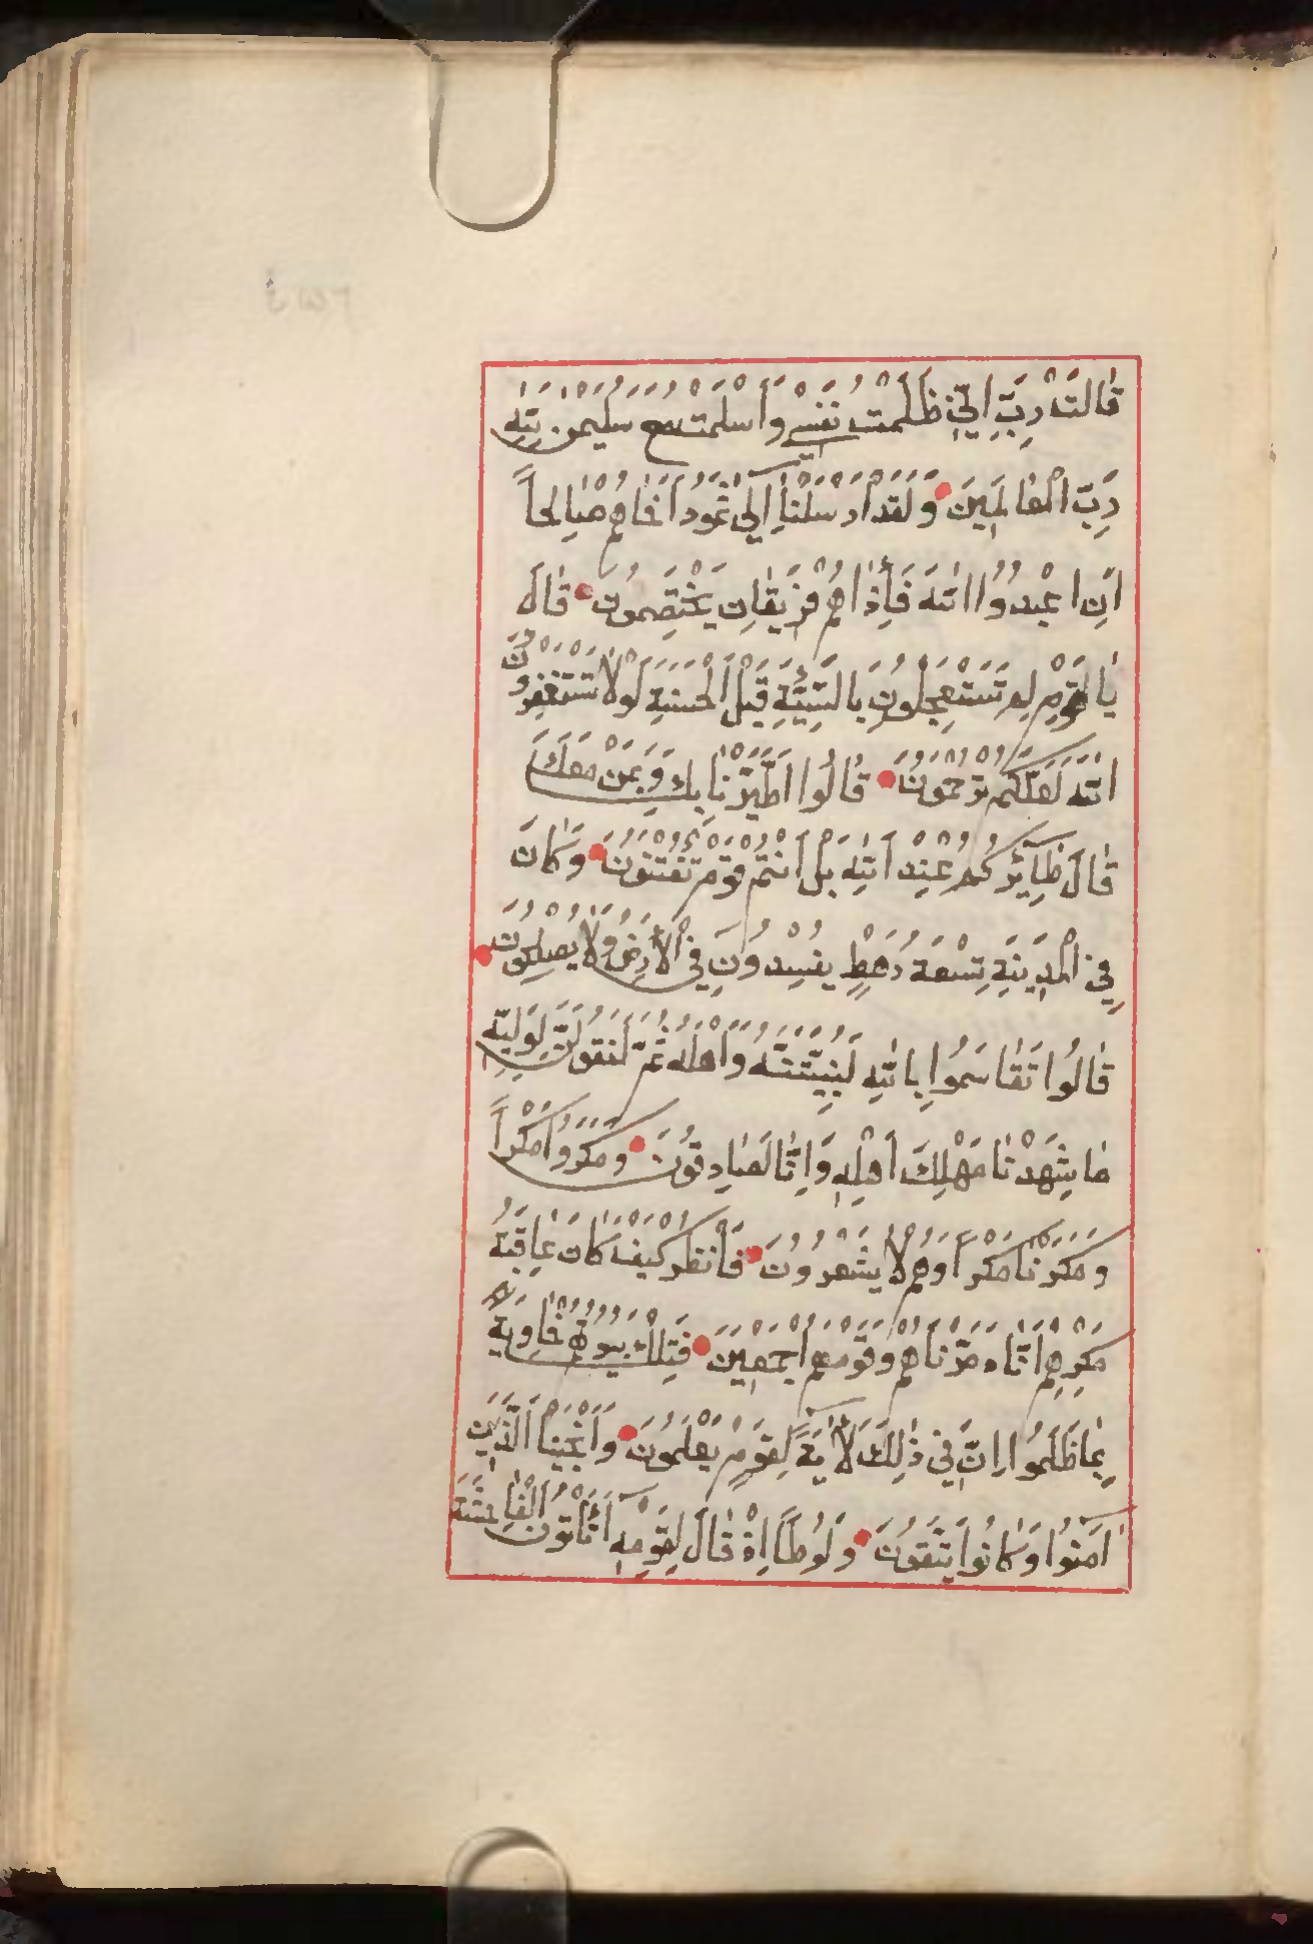 قَالَتْ رَبِّ اِنّي ظَلَمْتُ نَفْسي وَاَسْلَمْتُ مَعَ سُلَيْمٰنَ لِلّٰهِ
رَبِّ الْعَالَمِينَ وَلَقَدْ اَرْسَلْنَا اِلٰى ثَمُودَ اَخَاهُمْ صَالِحاً
اَنِ اعْبُدُوُا اللّٰهَ فَاِذَا هُمْ فَرِيقَانِ يَخْتَصِمُونَ قَالَ
يَا قَوْمِ لِمَ تَسْتَعْجِلُونَ بِالسَّيِّئَةِ قَبْلَ الْحَسَنَةِ لَوْلَا تَسْتَغْفِرُونَ
اللّٰهَ لَعَلَّكُمْ تُرْحَمُونَ قَالُوا اطَّيَّرْنَا بِكَ وَبِمَنْ مَعَكَ
قَالَ طَآئِرُكُمْ عِنْدَ اللّٰهِ بَلْ اَنْتُمْ قَوْمٌ تُفْتَنُونَ وَكَانَ
فِي الْمَدِينَةِ تِسْعَةُ رَهْطٍ يُفْسِدُونَ فِي الْاَرْضِ وَلَا يُصْلِحُونَ
قَالُوا تَقَاسَمُوا بِاللّٰهِ لَنُبَيِّتَنَّهُ وَاَهْلَهُ ثُمَّ لَنَقُولَنَّ لِوَلِيِّهِ
مَا شَهِدْنَا مَهْلِكَ اَهْلِهِ وَاِنَّا لَصَادِقُونَ وَمَكَرُوا مَكْراً
وَمَكَرْنَا مَكْراً وَهُمْ لَا يَشْعُرُونَ فَانْظُرْ كَيْفَ كَانَ عَاقِبَةُ
مَكْرِهِمْ اَنَّا دَمَّرْنَاهُمْ وَقَوْمَهُمْ اَجْمَعِينَ فَتِلْكَ بُيُوتُهُمْ خَاوِيَةً
بِمَا ظَلَمُوا اِنَّ فِي ذٰلِكَ لَاٰيَةً لِقَوْمٍ يَعْلَمُونَ وَاَنْجَيْنَا الَّذِينَ
اٰمَنُوا وَكَانُوا يَتَّقُونَ وَلُوطاً اِذْ قَالَ لِقَوْمِهِ اَتَأْتُونَ الْفَاحِشَةَ